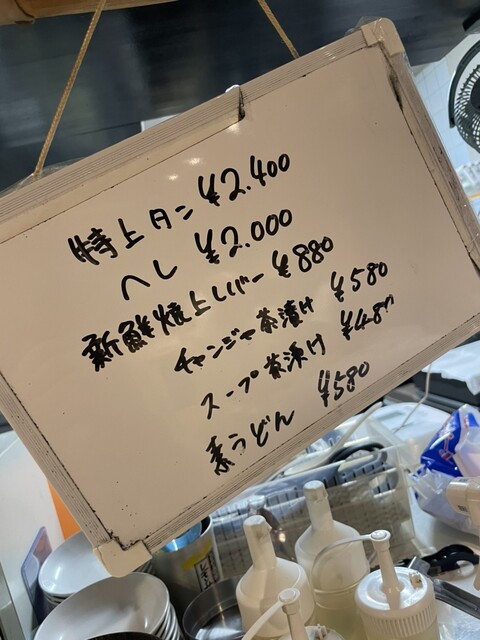 特上タン ¥2.400
ヘレ ¥2.000
新鮮焼上レバー ¥880
チャンジャ茶漬け ¥580
スープ茶漬け ¥48
素うどん ¥580